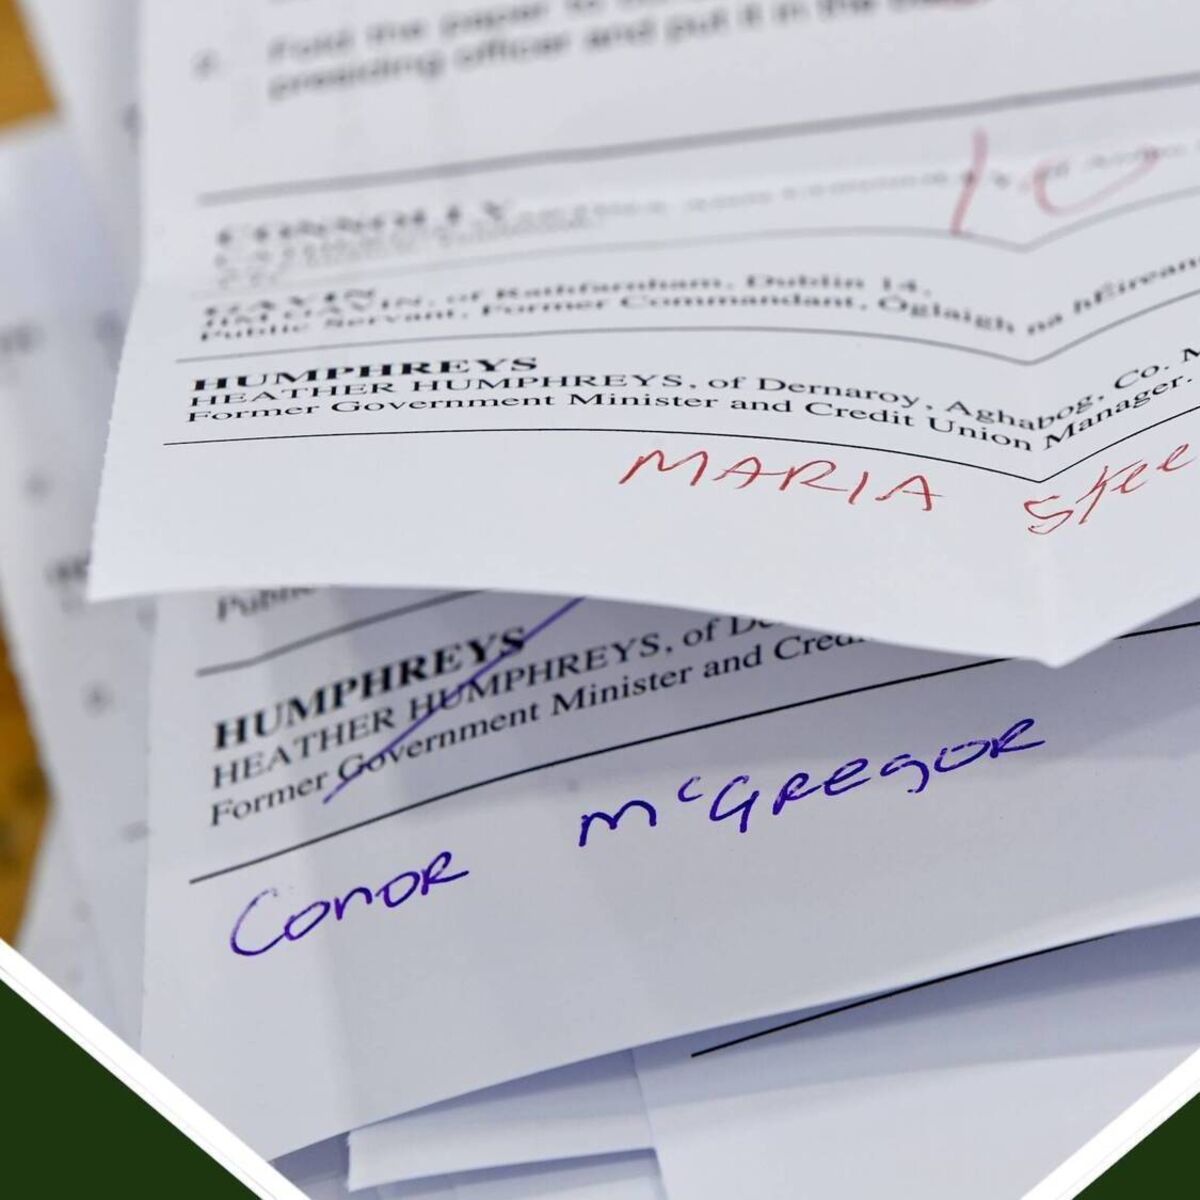 2. Fold the paper to
presiding officer and put it in the
CONNOLLY
GAVIN
JIM GAVIN, of Rathfarnham, Dublin 14.
Public Servant, Former Commandant, Óglaigh na hÉireann
HUMPHREYS
HEATHER HUMPHREYS, of Dernaroy, Aghabog, Co. M
Former Government Minister and Credit Union Manager.
MARIA Stee
Public
HUMPHREYS
HEATHER HUMPHREYS, of De
Former Government Minister and Cred
Conor McGregor